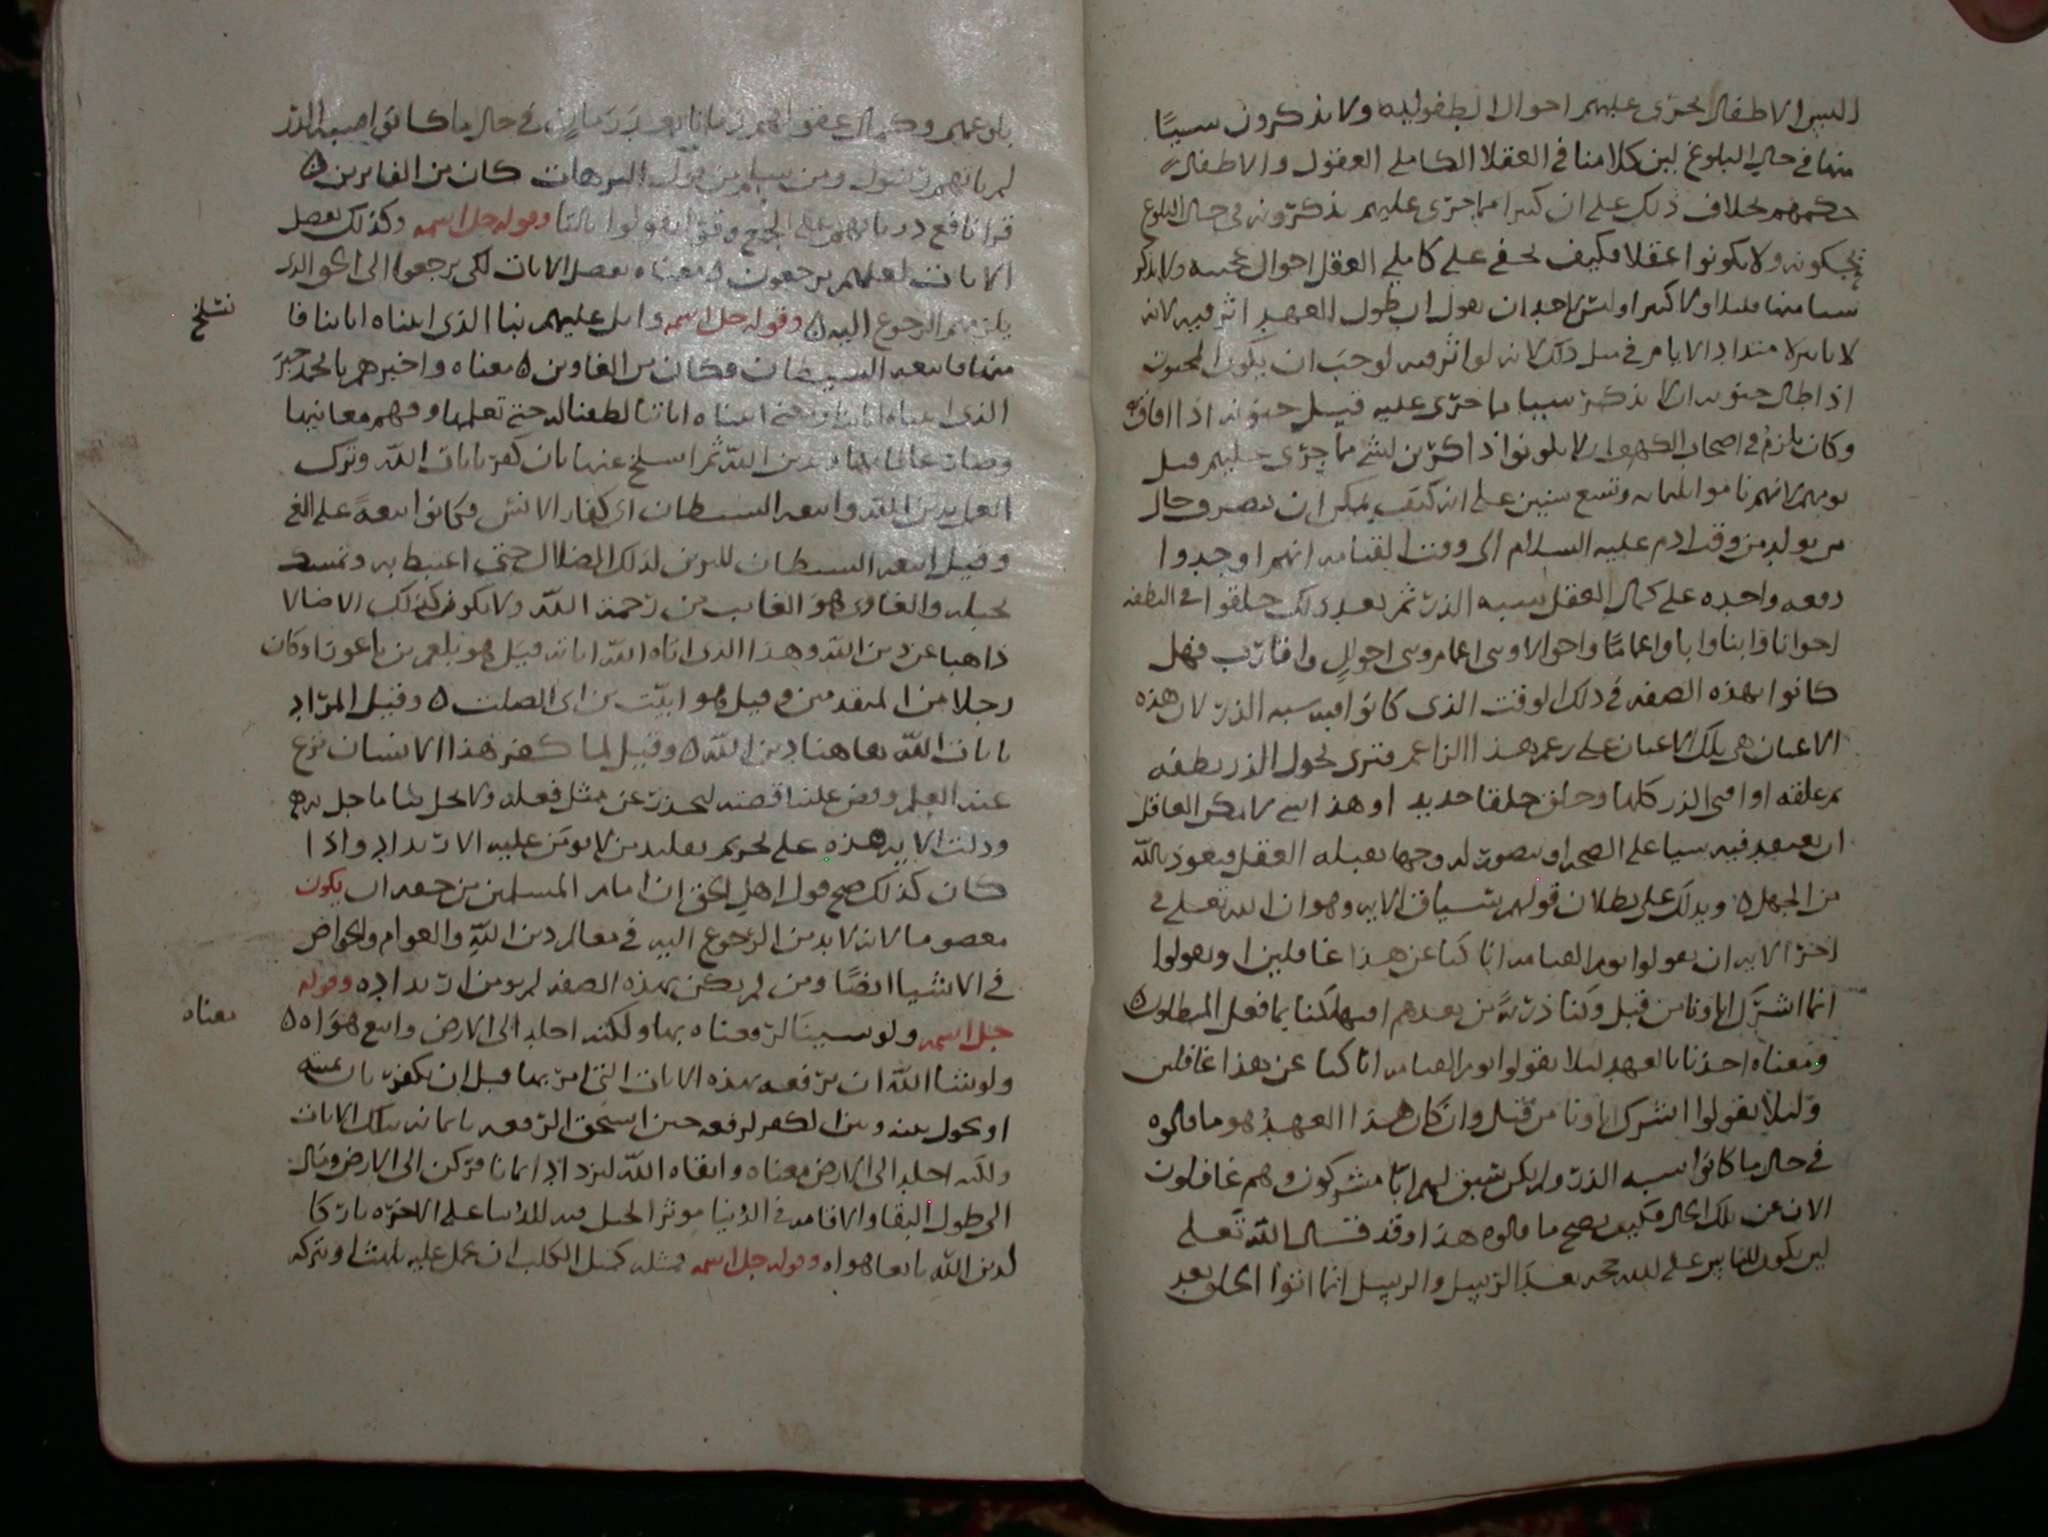 اليس الاطفال تجرى عليهم احوال الطفوليه ولا يذكرون شيئا
منها في حال البلوغ لين كلامنا في العقلا الكاملي العقول والاطفال
حكمهم بخلاف ذلك على ان كثيرا مما جرى عليهم يذكرونه في حال البلوغ
ولا يكونوا عقلا فكيف يخفى على كاملي العقل احوال عجيبه ولا يذكر
منها قليلا ولا كثيرا وليس لاحد ان يقول ان طول العهد اثر فيه لانه
لا تاثير لامتداد الايام في مثل ذلك لانه لو اثر فيه لوجب ان يكون المجنون
اذا طال جنونه ان لا يذكر شييا مما جرى عليه قبل جنونه اذا افاق
وكان يلزم في اصحاب الكهف ان لا يكونوا ذاكرين لشي مما جرى عليهم قبل
نومهم لانهم ناموا ثلثمايه وتسع سنين على انه كيف يمكن ان تصور حال
من يولد من وقت ادم عليه السلام الى وقت القيامه انهم اوجدوا
دفعه واحده على كمال العقل شبه الذر ثم بعد ذلك خلقوا في النطفه
اخوانا وابنا وابا واعماما واخوالا وبني اعمام وبني اخوال واقارب فهل
كانوا بهذه الصفه في ذلك الوقت الذي كانوا فيه شبه الذر لان هذه
الاعيان هي تلك الاعيان على زعم هذا الزاعم فترى تحول الذر نطفه
ثم علقه او افنى الذر كلها وخلق خلقا جديدا وهذا شي لا يمكن العاقل
ان يعتقد فيه شيا على الصحه او يتصور له وجها يقبله العقل فنعوذ بالله
من الجهل ٥ ويدلك على بطلان قولهم سياق الايه وهو ان الله تعلى في
اخر الايه ان يقولوا يوم القيامه انا كنا عن هذا غافلين او يقولوا
انما اشرك اباونا من قبل وكنا ذرية من بعدهم افتهلكنا بما فعل المبطلون ٥
ومعناه اخذنا بالعهد ليلا يقولوا يوم القيامه انا كنا عن هذا غافلين
وليلا يقولوا اشرك اباونا من قبل وان كان هذا العهد هو ما قالوه
في حال ما كانوا شبه الذر ولم يكن سبق لهم ابا مشركون وهم غافلون
الان عن تلك الحال فكيف يصح ما قالوه هذا وقد قال الله تعلى
لين يكون للناس على الله حجه بعد الرسل والرسل انما اتوا الخلق بعد
بلوغهم وكمال عقولهم زمانا بعد زمان في حال ما كانوا شبه الذر
لم ياتهم رسول ومن سلم من هذه الترهات كان من الفايزين ٥
قرا نافع ذرياتهم على الجمع وقرا يقولوا بالتا وقوله جل اسمه وكذلك نفصل
الايات لعلهم يرجعون ٥ معناه نفصل الايات لكي يرجعوا الى الحق الذي
يلزمهم الرجوع اليه ٥ وقوله جل اسمه واتل عليهم نبا الذي اتيناه اياتنا فا
نسلخ
منها فاتبعه الشيطان فكان من الغاوين ٥ معناه واخبرهم يا محمد خبر
الذي اتيناه اياتنا ومعنى اتيناه اياتنا لطفنا له حتى تعلمها وفهم معانيها
وصار عالما بها وبدين الله ثم انسلخ عنها بان كفر بايات الله وترك
العمل بدين الله واتبعه الشيطان اي كفار الانس فكانوا تبعه على الغي
وقيل اتبعه الشيطان للتزين لذلك الضلال حتى اغتبط به وتمسك
بحبله والغاوى هو الخايب من رحمة الله ولا يكون كذلك الا ضالا
ذاهبا عن دين الله وهذا الذي اتاه الله اياته قيل هو بلعم بن باعورا وكان
رجلا من المتقدمين وقيل هو اميّة بن ابى الصلت ٥ وقيل المراد
بايات الله هاهنا دين الله ٥ وقيل لما كفر هذا الانسان نزع
عنه العلم وقص علينا قصته لنحذر عن مثل فعله ولا يحل بنا ما حل به ٥
ودلت الايه هذه على تحريم تقليد من لا يومن عليه الارتداد واذا
كان كذلك صح قول اهل الحق ان امام المسلمين من حقه ان يكون
معصوما لانه لا بد من الرجوع اليه في معالم دين الله والعوام والخواص
في الاشيا ايضا ومن لم يكن بهذه الصفه لم يومن ارتداده وقوله
جل اسمه ولو شينا لرفعناه بها ولكنه اخلد الى الارض واتبع هواه ٥
معناه
ولو شا الله ان يرفعه بهذه الايات التي امن بها قبل ان يكفر بان يميته
او يحول بينه وبين الكفر لرفعه حين استحق الرفعه بايمانه بتلك الايات
ولكنه اخلد الى الارض معناه وابقاه الله ليزداد ايمانا فركن الى الارض ومال
الى طول البقا والاقامه في الدنيا موثرا لحبل فيه للدنيا على الاخره تاركا
لدين الله تابعا هواه وقوله جل اسمه فمثله كمثل الكلب ان تحمل عليه يلهث او تتركه